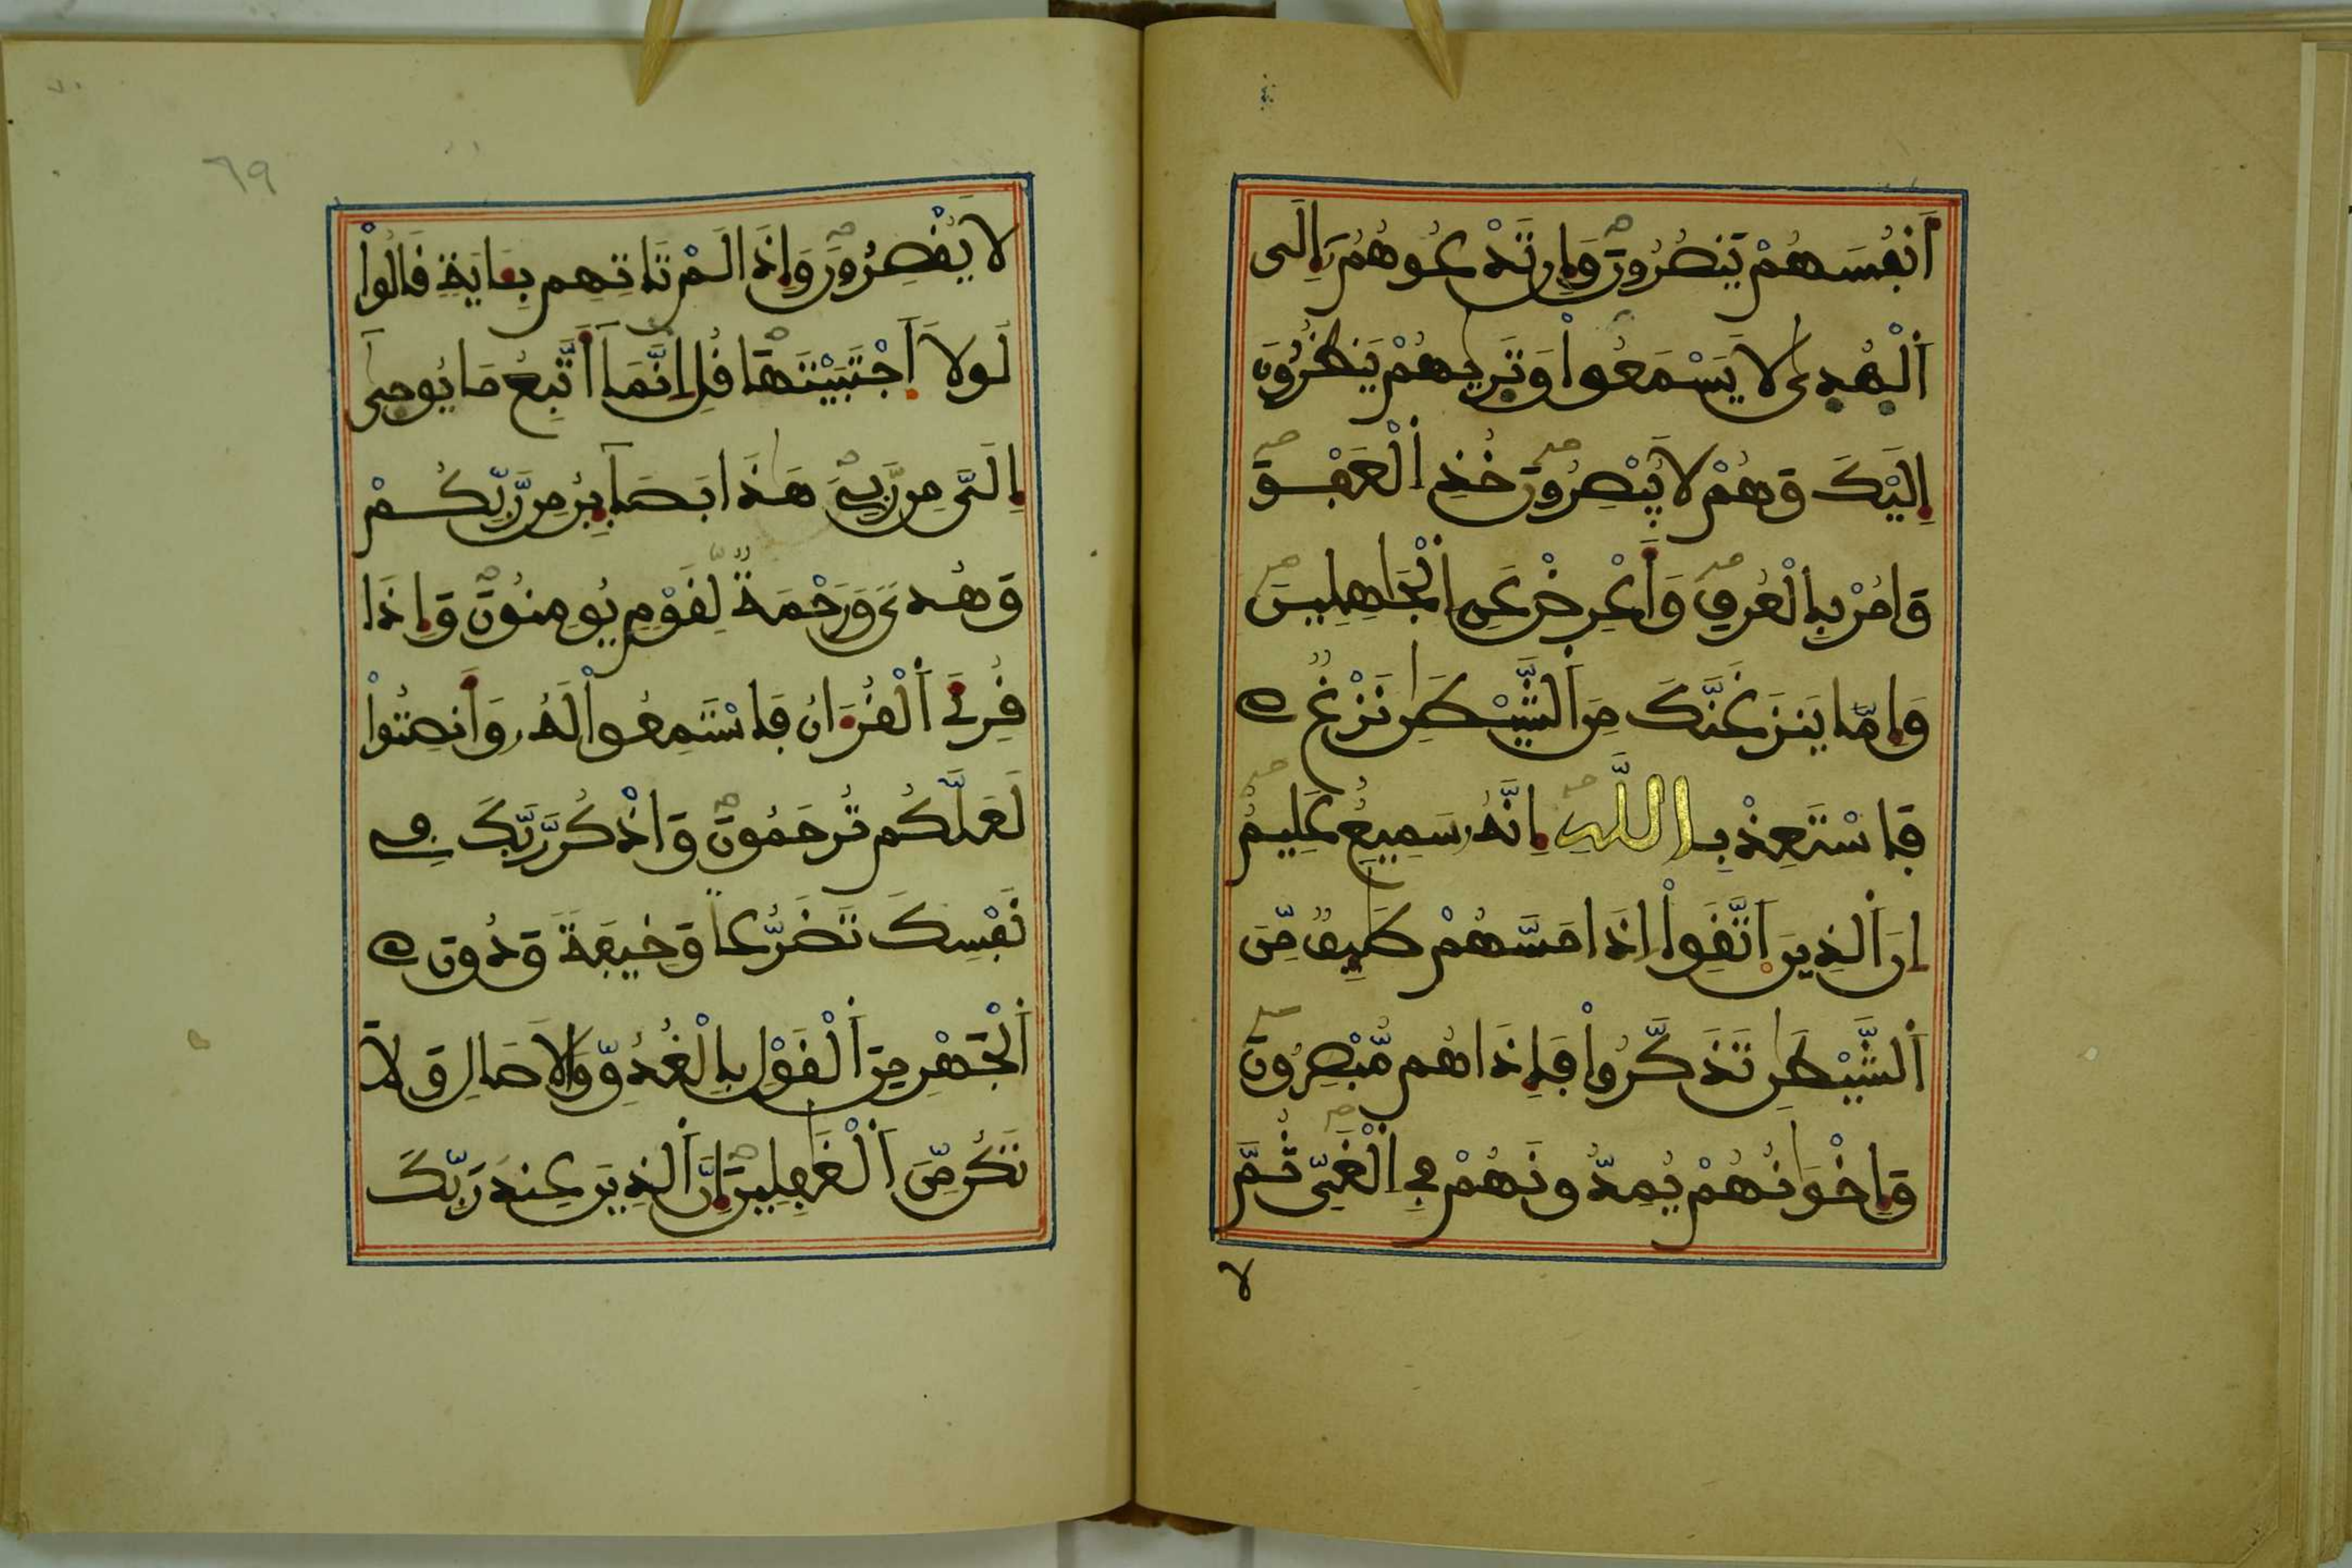 أَنفُسَهُمْ يَنصُرُونَ وَإِن تَدْعُوهُمُۥٓ إِلَى
اَ۬لْهُد۪ىٰ لَا يَسْمَعُواْ وَتَر۪يٰهُمْ يَنظُرُونَ
إِلَيْكَ وَهُمْ لَا يُبْصِرُونَ خُذِ اِ۬لْعَفْوَ
وَامُرْ بِالْعُرْفِ وَأَعْرِضْ عَنِ اِ۬لْجَٰهِلِينَ
وَإِمَّا يَنزَغَنَّكَ مِنَ اَ۬لشَّيْطَٰنِ نَزْغٌ
فَاسْتَعِذْ بِاللَّهِ إِنَّهُۥ سَمِيعٌ عَلِيمٌ
إِنَّ اَ۬لذِينَ اَ۪تَّقَوِاْ إِذَا مَسَّهُمْ طَٰٓئِفٌ مِّنَ
اَ۬لشَّيْطَٰنِ تَذَكَّرُواْ فَإِذَا هُم مُّبْصِرُونَ
وَإِخْوَٰنُهُمْ يُمِدُّونَهُمْ فِے اِ۬لْغَيِّ ثُمَّ
لا
٦٩
لَا يُقْصِرُونَ وَإِذَا لَمْ تَاتِهِم بِـَٔايَةٍ قَالُواْ
لَوْلَا اَ۪جْتَبَيْتَهَا قُلِ اِنَّمَآ أَتَّبِعُ مَا يُوحَىٰٓ
إِلَىَّ مِن رَّبِّے هَٰذَا بَصَآئِرُ مِن رَّبِّكُمْ
وَهُدىً وَرَحْمَةٌ لِّقَوْمٍ يُومِنُونَ وَإِذَا
قُرِئَ اَ۬لْقُرْءَانُ فَاسْتَمِعُواْ لَهُۥ وَأَنصِتُواْ
لَعَلَّكُمْ تُرْحَمُونَ وَاذْكُر رَّبَّكَ فِے
نَفْسِكَ تَضَرُّعاً وَخِيفَةً وَدُونَ
اَ۬لْجَهْرِ مِنَ اَ۬لْقَوْلِ بِالْغُدُوِّ وَالَاصَالِ وَلَا
تَكُن مِّنَ اَ۬لْغَٰفِلِينَ إِنَّ اَ۬لذِينَ عِندَ رَبِّكَ